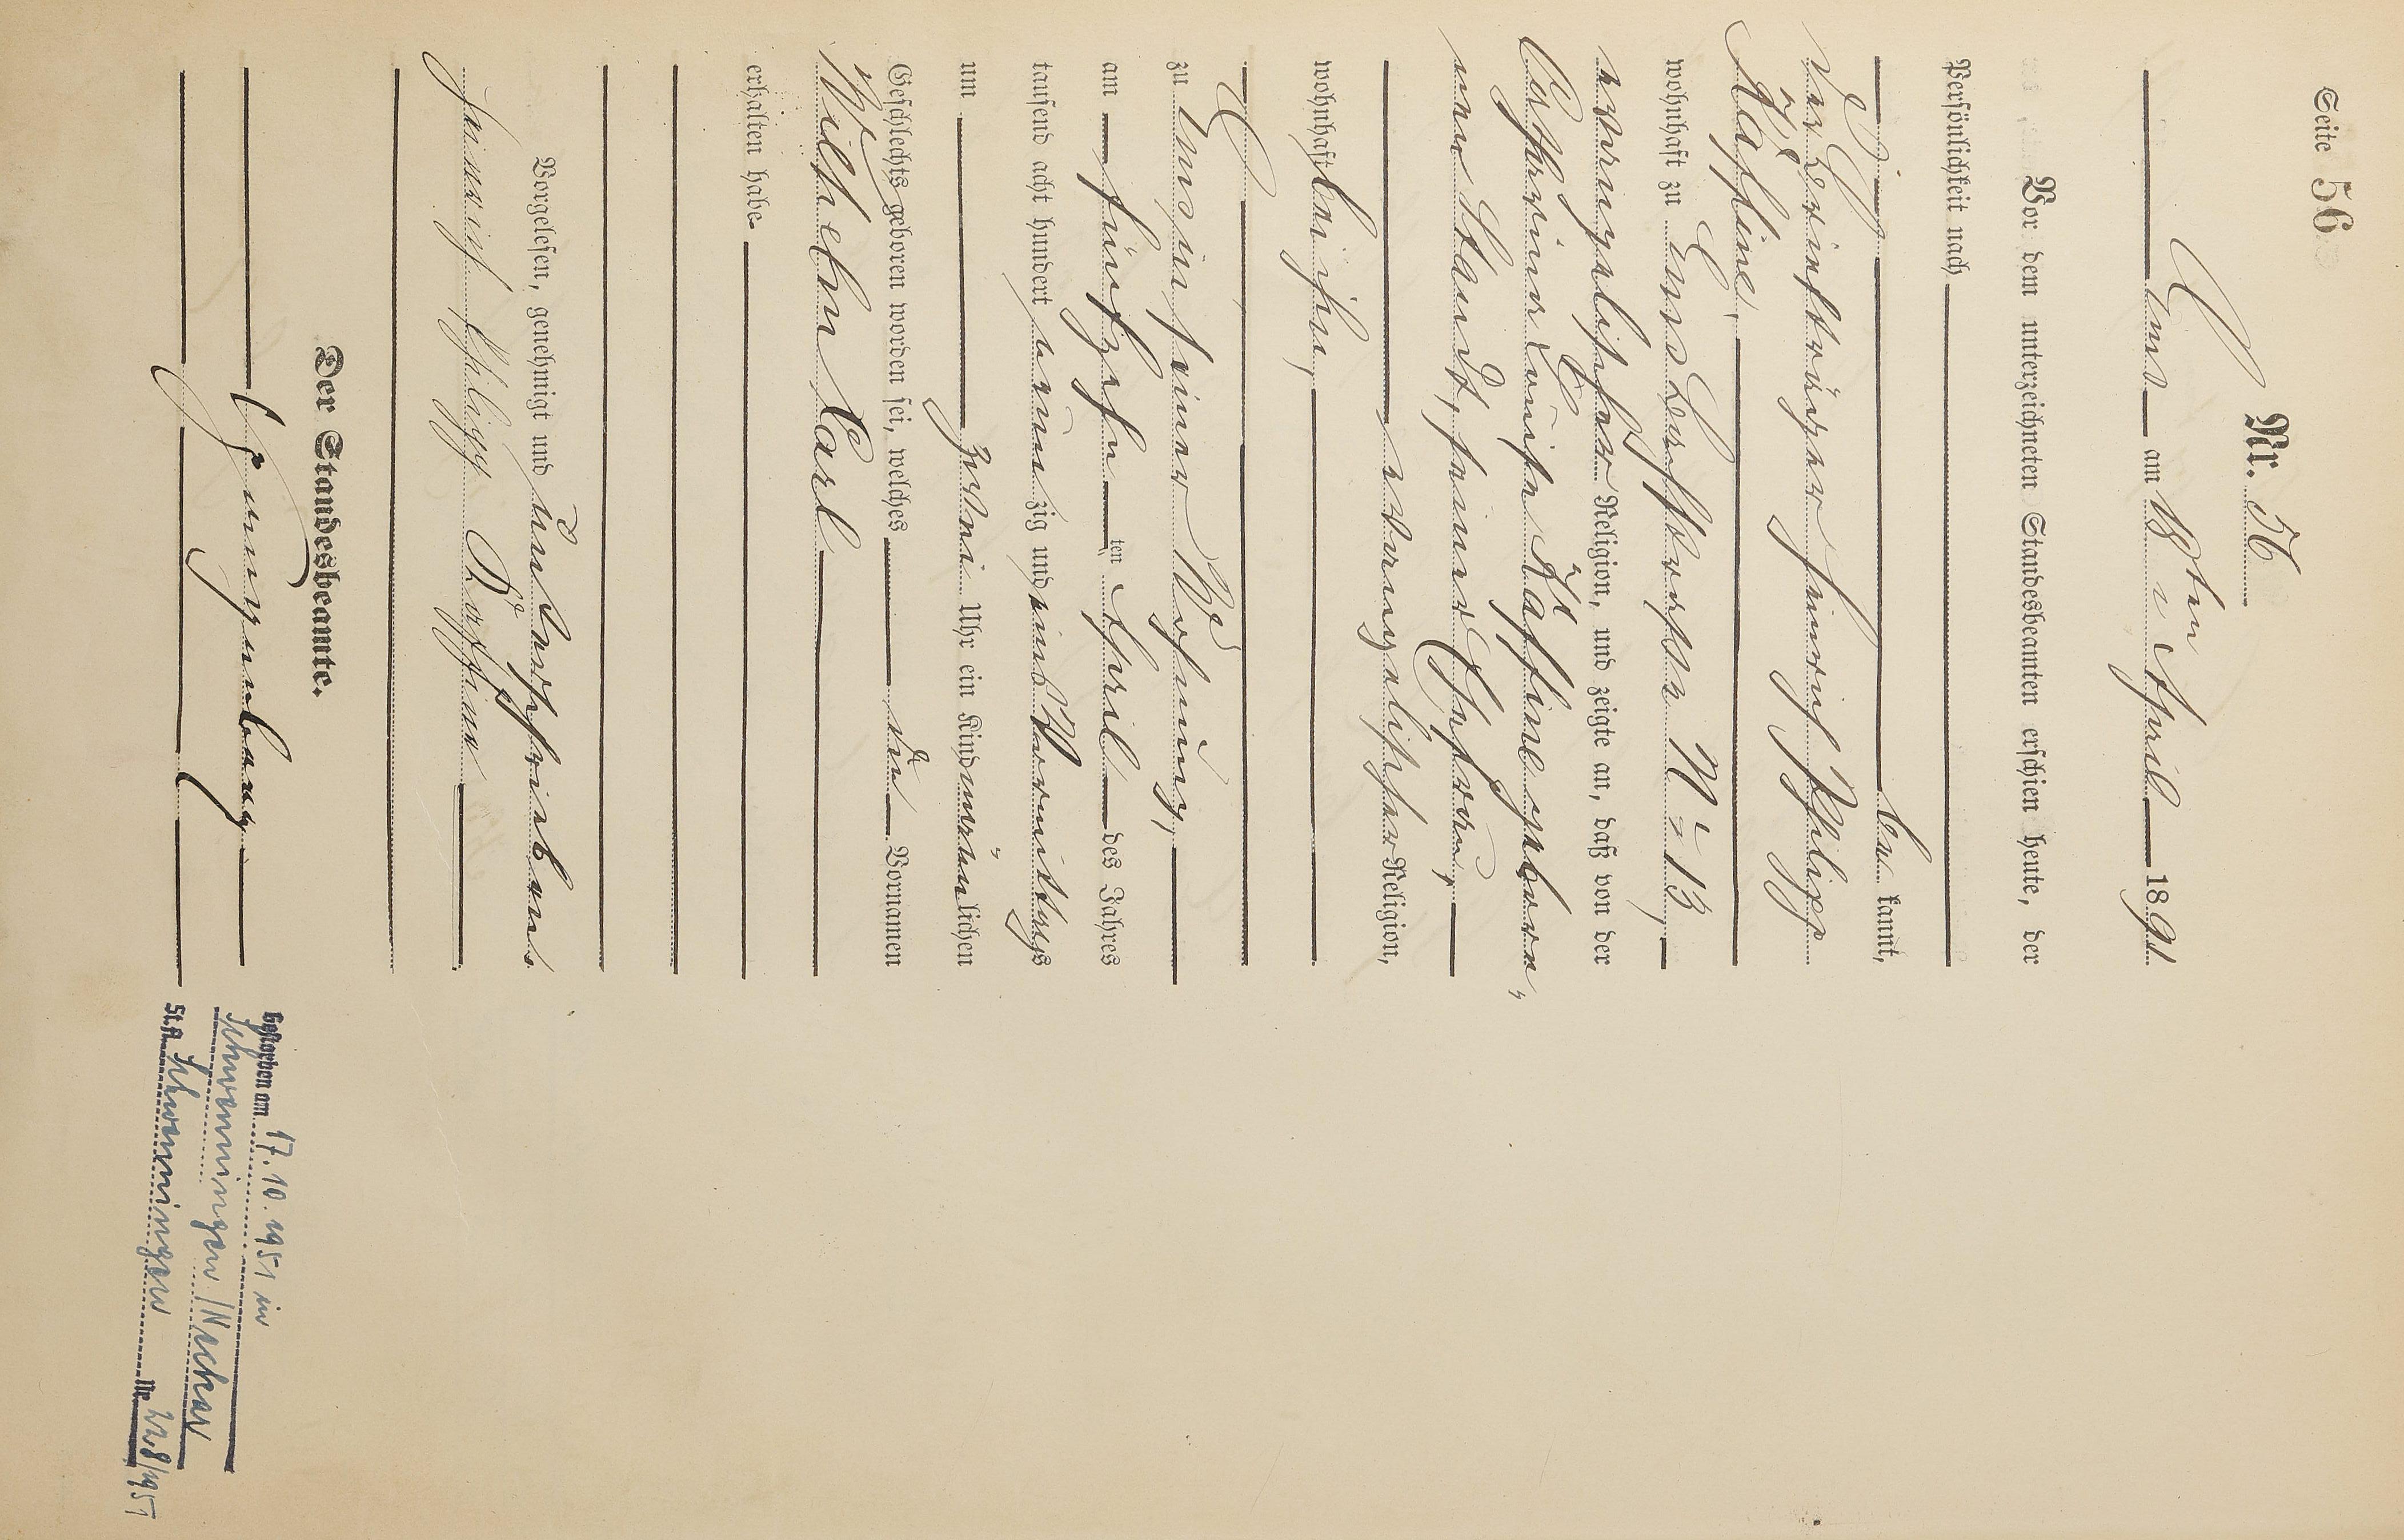 Seite 56
Nr. 56
Ems am 18ten April 1891.
Vor dem unterzeichneten Standesbeamten erschien heute, der
Persönlichkeit nach
be kannt,
der Heinrich Philipp
Käßtine,
wohnhaft zu Ems № 13,
evangelischer Religion, und zeigte an, daß von der
Catharine Louise Käßtine gebore-
nen Staudt, seiner Ehefrau,
evangelischer Religion,
wohnhaft bei ihm,
zu Ems in seiner Wohnung,
am fünfzehn ten April des Jahres
tausend acht hundert neun zig und eins Vormittags
um zwei Uhr ein Kind männ lichen
Geschlechts geboren worden sei, welches die Vornamen
Wilhelm Carl
erhalten habe.
Vorgelesen, genehmigt und unterschrieben
Heinrich Philipp
Der Standesbeamte.
Gestorben am 17.10.1951 in
Schwenningen / Neckar
St.A. Schwenningen Nr. 228/1951